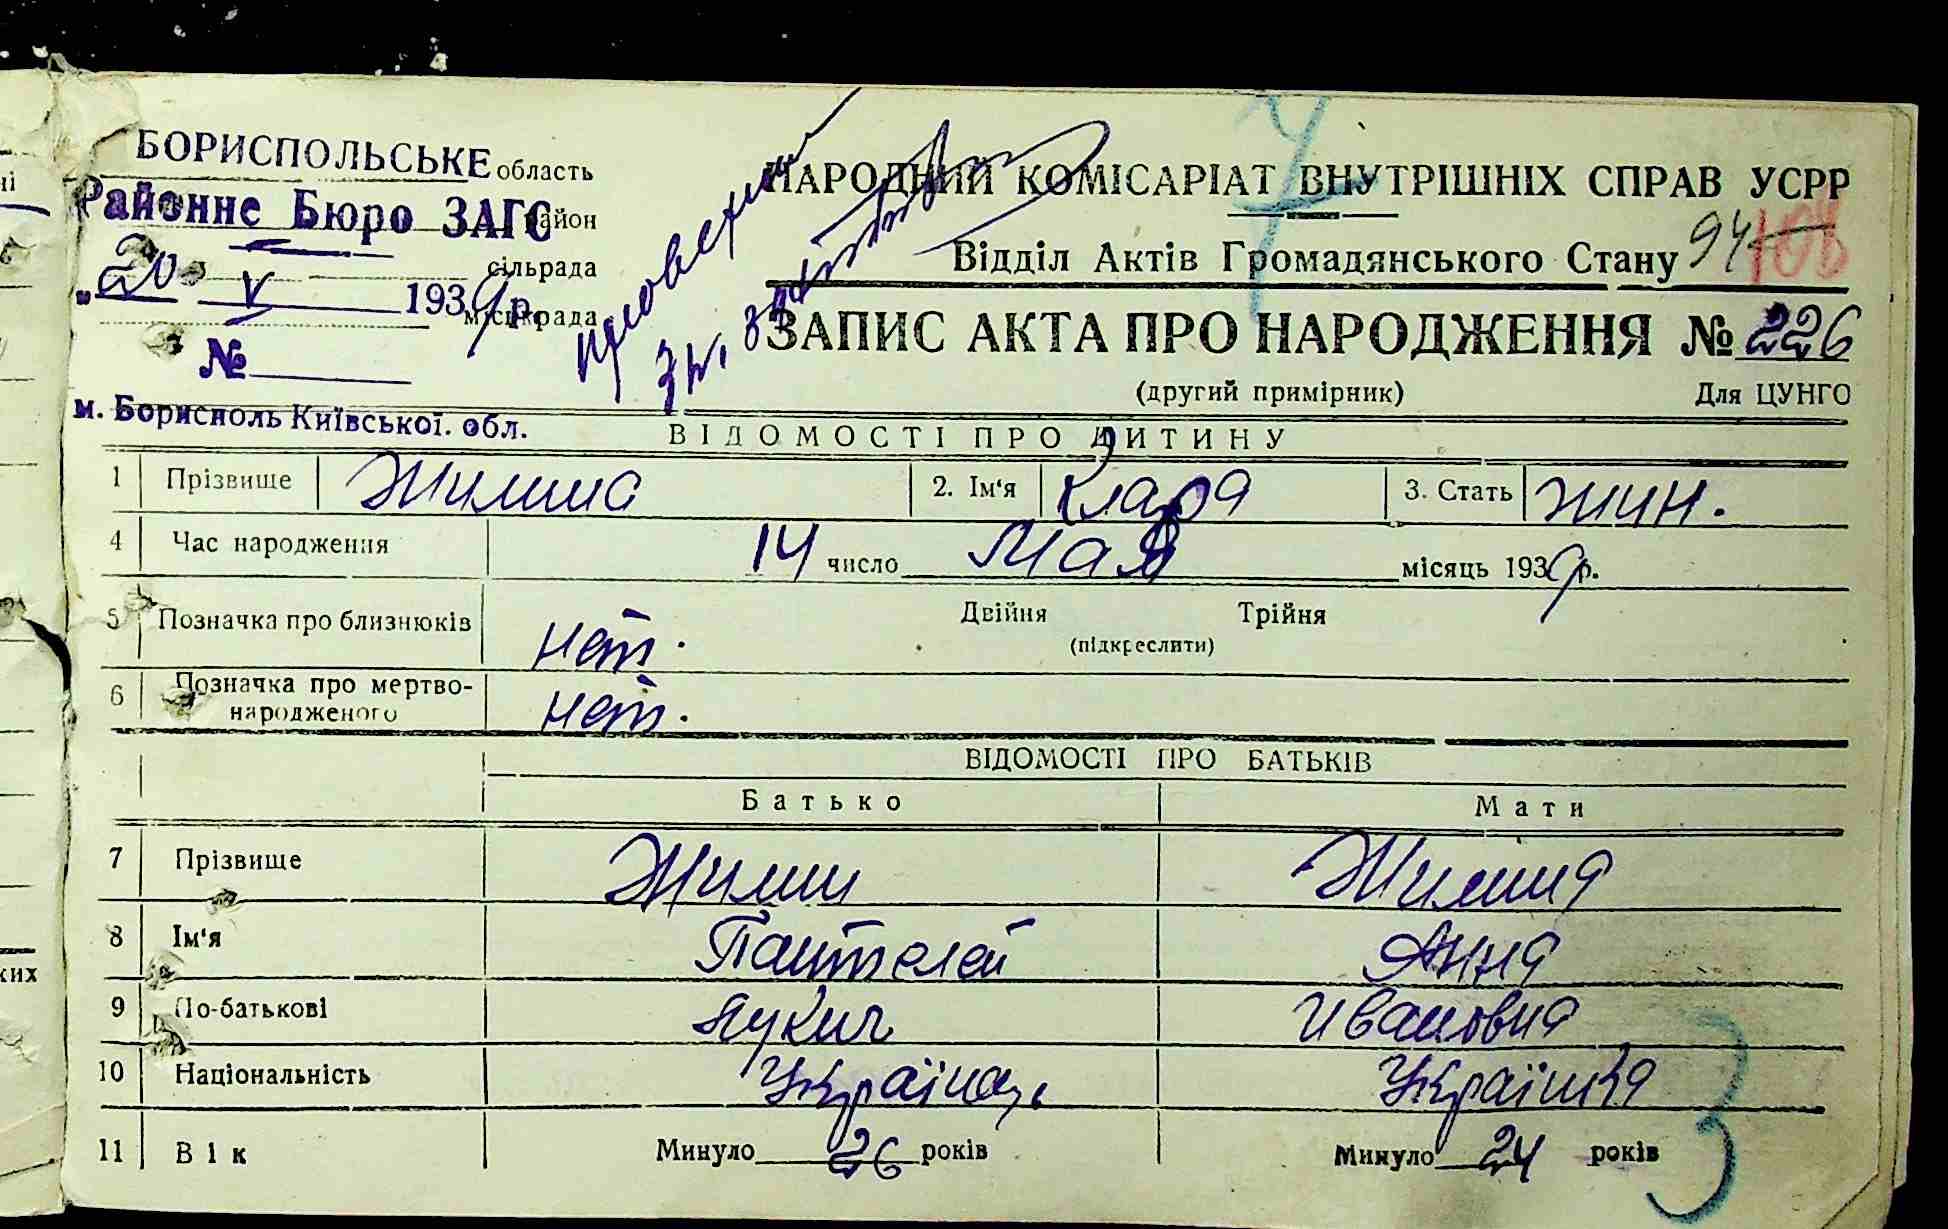 БОРИСПОЛЬСЬКЕ область
Районне Бюро ЗАГС район
сільрада
"20" V 1939 р. міськрада
№
м. Борисполь Київської. обл.
НАРОДНИЙ КОМІСАРІАТ ВНУТРІШНІХ СПРАВ УСРР
Відділ Актів Громадянського Стану 94 108
ЗАПИС АКТА ПРО НАРОДЖЕННЯ № 226
(другий примірник) Для ЦУНГО
ВІДОМОСТІ ПРО ДИТИНУ
1 Прізвище Жилина 2. Ім'я Клара 3. Стать жин.
4 Час народження 14 число Мая місяць 1939 р.
5 Позначка про близнюків нет. Двійня Трійня
(підкреслити)
6 Позначка про мертво-
народженого нет.
ВІДОМОСТІ ПРО БАТЬКІВ
Батько Мати
7 Прізвище Жилин Жилина
8 Ім'я Пантелей Анна
9 По-батькові Лукич Ивановна
10 Національність Українець Українка
11 Вік Минуло 26 років Минуло 24 років
ких